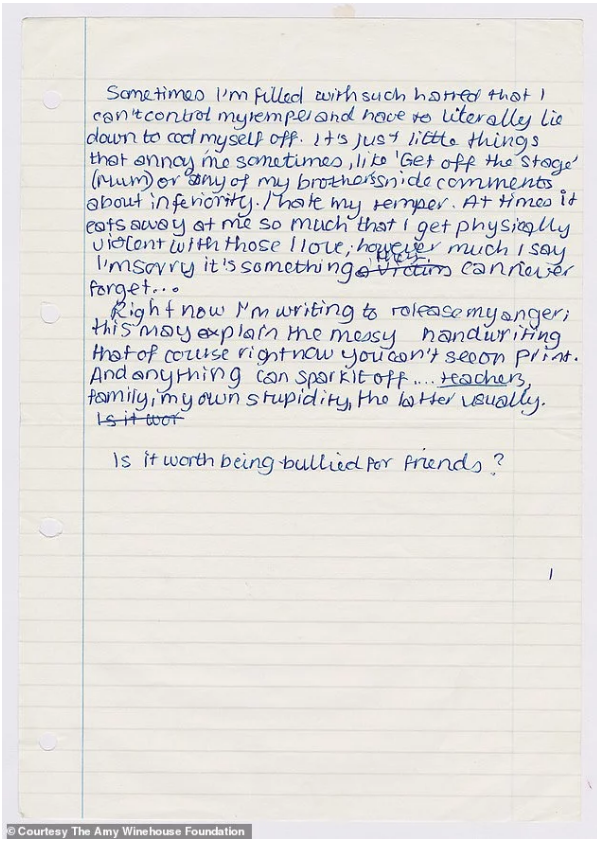 Sometimes I'm filled with such hatred that I
can't control my temper and have to literally lie
down to cool myself off. It's just little things
that annoy me sometimes, like 'Get off the stage'
(Mum) or any of my brothers snide comments
about inferiority. I hate my temper. At times it
eats away at me so much that I get physically
violent with those I love, however much I say
I'm sorry it's something a victim they can never
forget...
Right now I'm writing to release my anger;
this may explain the messy handwriting
that of course right now you can't see on print.
And anything can spark it off .... teachers,
family, my own stupidity, the latter usually.
Is it wor
Is it worth being bullied for friends?
1
© Courtesy The Amy Winehouse Foundation